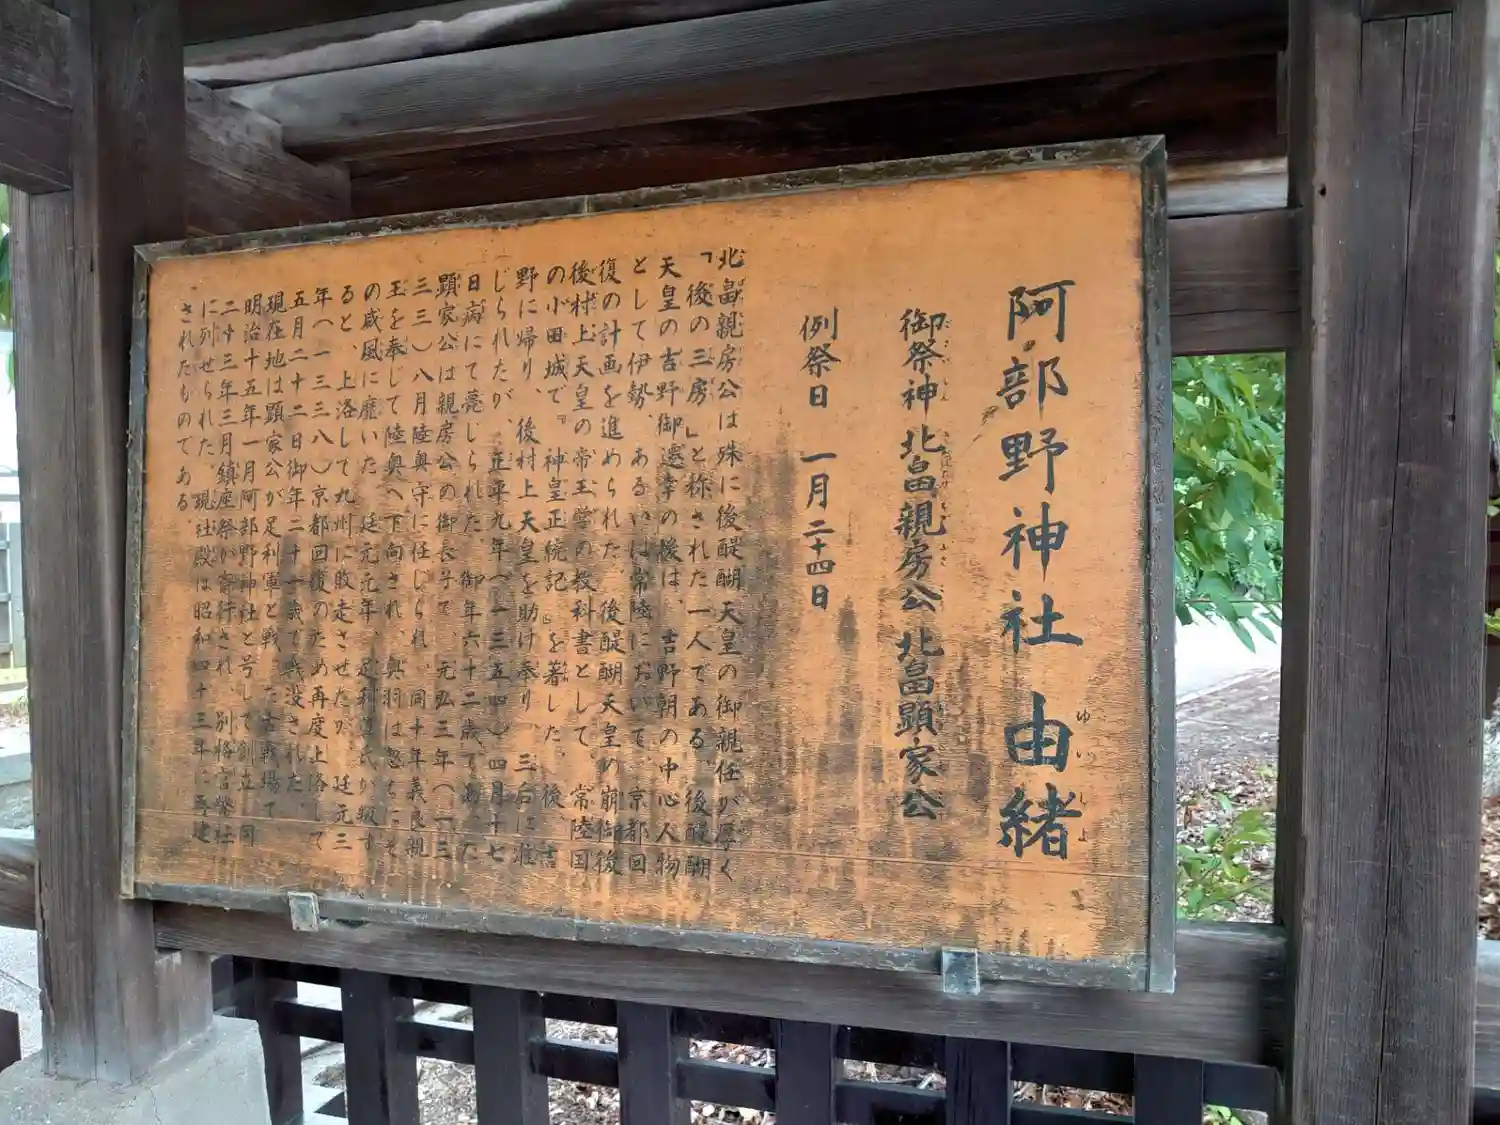 阿部野神社由緒
ゆいしよ
御祭神 北畠親房公 北畠顕家公
例祭日 一月二十四日
北畠親房公は殊に後醍醐天皇の御親任が厚く
「後の三房」と称された一人である、後醍醐
天皇の吉野御遷幸の後は、吉野朝の中心人物
として伊勢、あるいは常陸において、京都回
復の計画を進められた、後醍醐天皇の崩御後
後村上天皇の帝王学の教科書として、常陸国
の小田城で『神皇正統記』を著した、後、吉
野に帰り、後村上天皇を助け奉り、三后に准
じられたが、正平九年(一三五四)四月十七
日病にて薨じられた、御年六十二歳であった
顕家公は親房公の御長子で、元弘三年(一三
三三)八月陸奥守に任じられ、同十年義良親
王を奉じて陸奥へ下向され、奥羽は忽ちにそ
の威風に靡いた、延元元年、足利尊氏が叛す
ると、上洛して九州に敗走させたが、延元三
年(一三三八)京都回復のため再度上洛して
五月二十二日御年二十一歳で戦没された、
現在地は顕家公が足利軍と戦った古戦場で
明治十五年一月阿部野神社と号して創立、同
二十三年三月鎮座祭が斎行され、別格官幣社
に列せられた、現社殿は昭和四十三年に再建
されたものである、